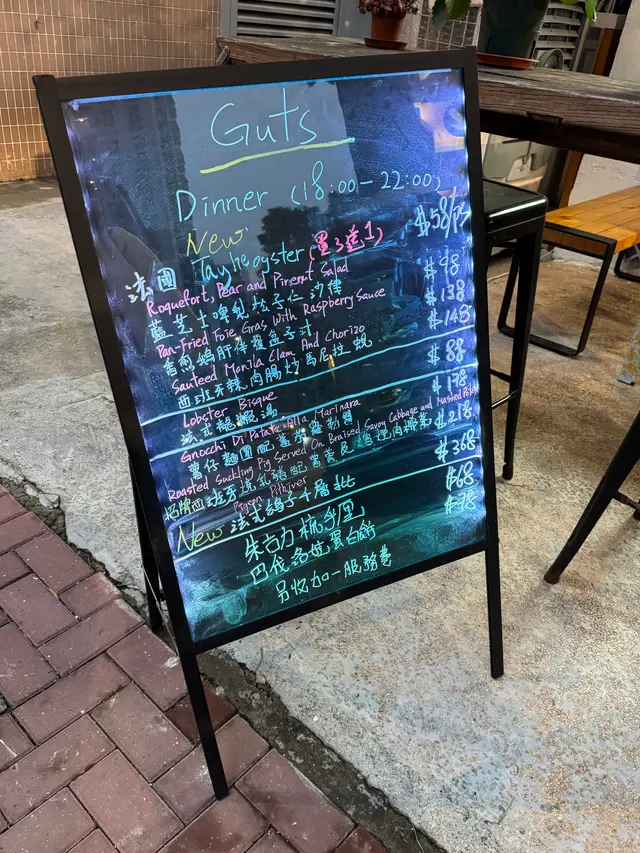 Guts
Dinner (18:00-22:00)
New
法國 Tayheoyster (買3送1) $58/pc
Roquefort, Pear and Pinenut Salad $98
藍芝士啤梨松子仁沙律
Pan-Fried Foie Gras With Raspberry Sauce $138
香煎鵝肝伴覆盆子汁
Sauteed Manila Clam And Chorizo $148
西班牙辣肉腸炒馬尼拉蜆
Lobster Bisque $88
法式龍蝦湯
Gnocchi Di Patata Alla Marinara $178
薯仔麵團配
Roasted Suckling Pig Served On Braised Savoy Cabbage and Mashed Potato $218
西班牙燒乳豬配
Pigeon Pithiver $368
New 法式鴿子千層批
朱古力梳乎厘 $68
巴伐洛娃蛋白餅
另收加一服務費